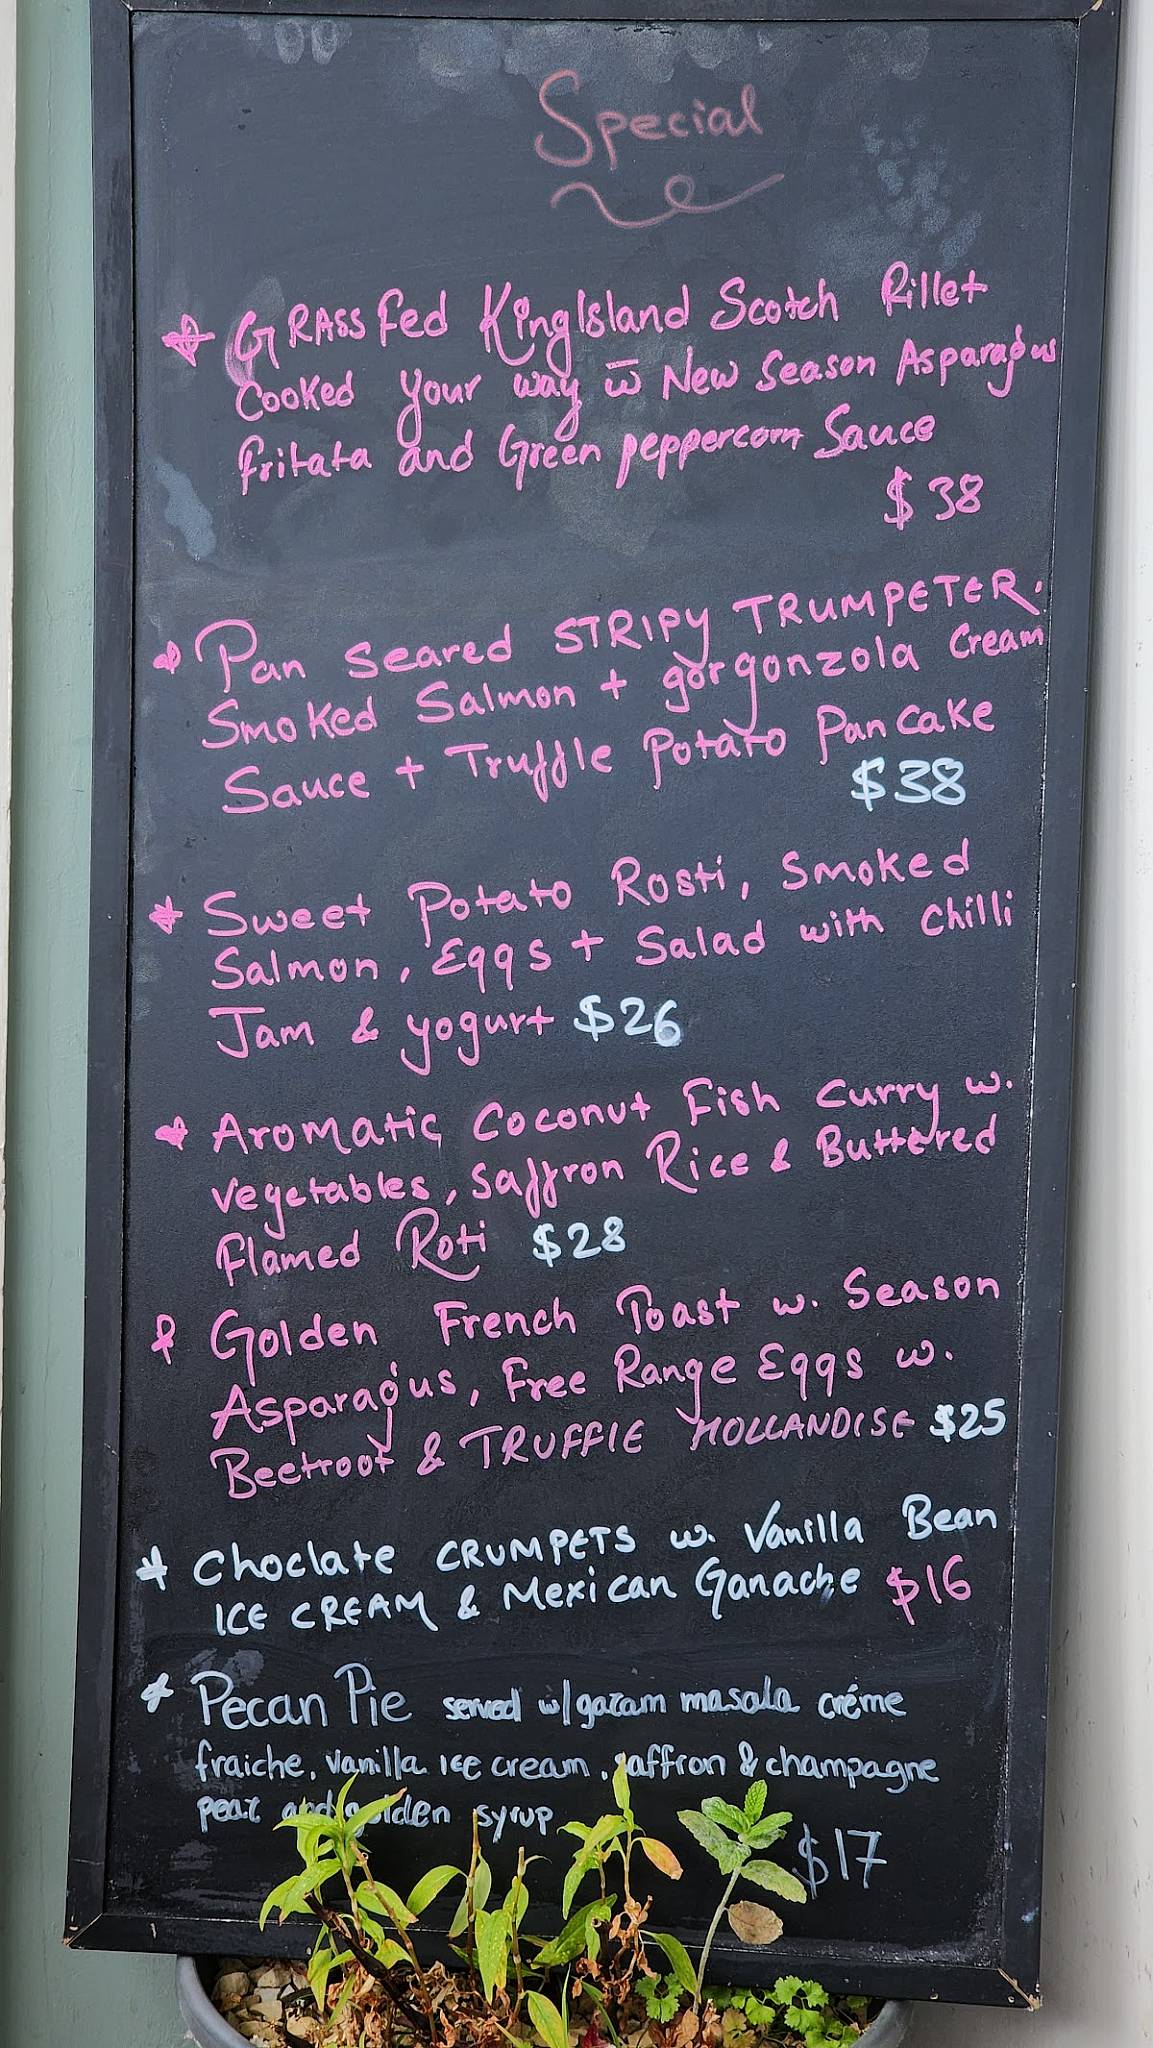 Special
GRASS Fed King Island Scotch Rillet
Cooked your way w̄ New Season Asparagus
fritata and Green peppercorn Sauce
$38
Pan Seared STRIPY TRUMPETER.
Smoked Salmon + gorgonzola Cream
Sauce + Truffle Potato Pancake
$38
Sweet Potato Rosti, Smoked
Salmon, Eggs + Salad with chilli
Jam & yogurt $26
Aromatic Coconut Fish Curry w.
vegetables, Saffron Rice & Buttered
flamed Roti $28
Golden French Toast w. Season
Asparagus, Free Range Eggs w.
Beetroot & TRUFFLE HOLLANDISE $25
Choclate CRUMPETS w. Vanilla Bean
ICE CREAM & Mexican Ganache $16
Pecan Pie served w/ garam masala créme
fraiche, vanilla ice cream, saffron & champagne
pear and golden syrup
$17